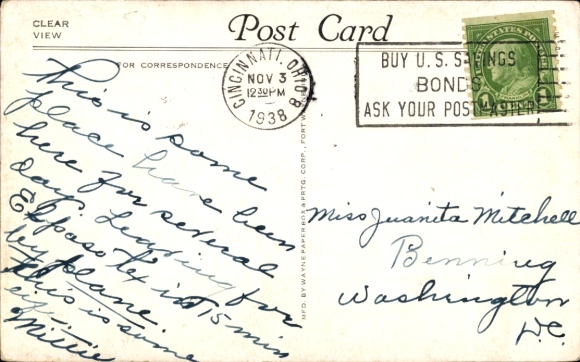 CLEAR
VIEW
Post Card
FOR CORRESPONDENCE
CINCINNATI, OHIO 8
NOV 3
12 30 PM
1938
BUY U.S. SAVINGS
BONDS
ASK YOUR POSTMASTER
This is some
place have been
here for several
days. Leaving for
El paso Tex in 15 min
by plane.
This is some
Millie
Miss Juanita Mitchell
Benning
Washington
D.C.
MFD. BY WAYNE PAPER BOX & PRTG. CORP., FORT WAYNE